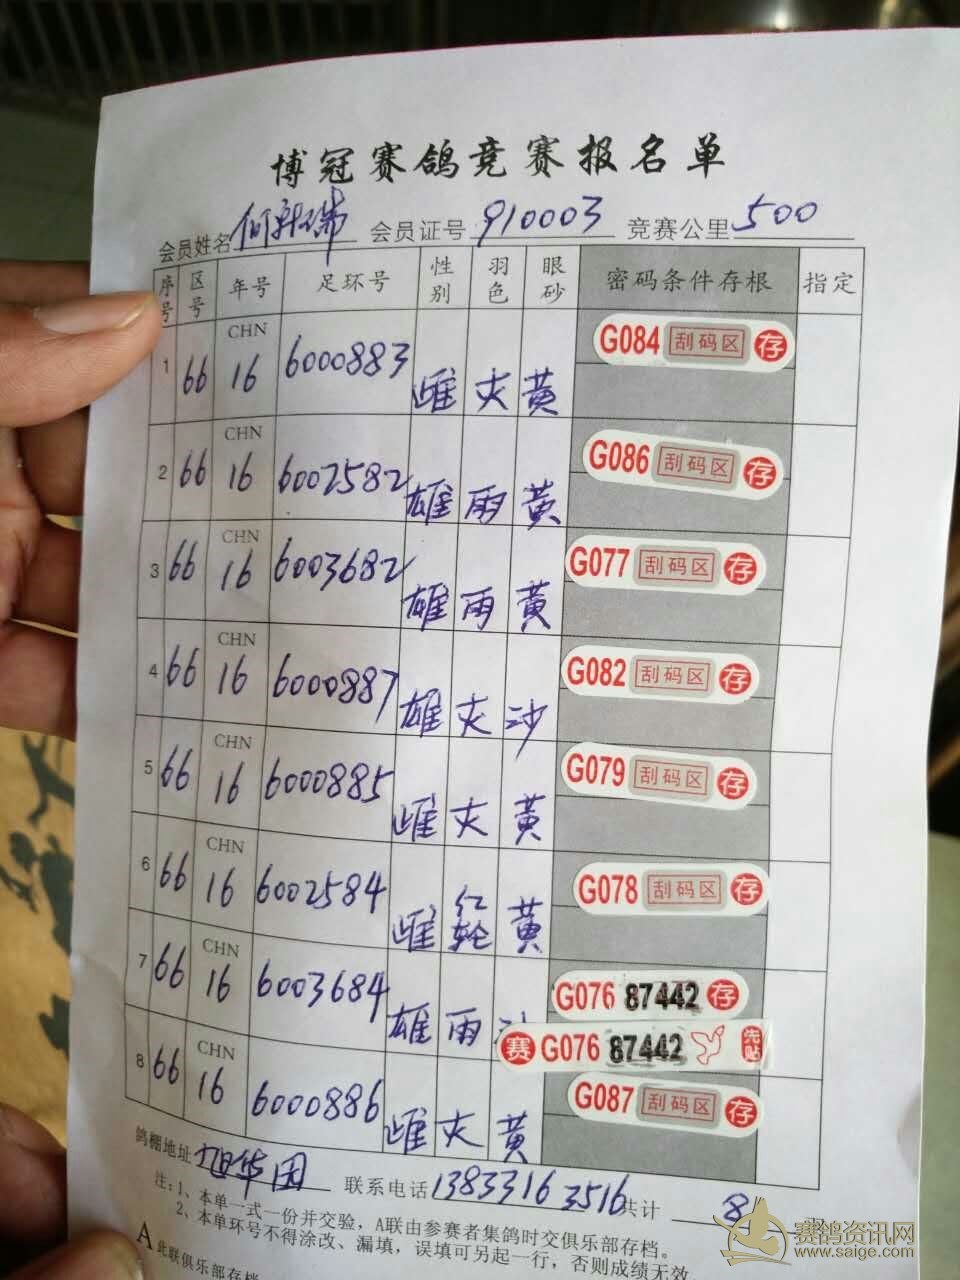 博冠赛鸽竞赛报名单
会员姓名 会员证号 910003 竞赛公里 500
序号 区号 年号 足环号 性别 羽色 眼砂 密码条件存根 指定
1 66 CHN 16 6000883 雌 灰 黄 G084 刮码区 存
2 66 CHN 16 6002582 雄 雨 黄 G086 刮码区 存
3 66 CHN 16 6003682 雄 雨 黄 G077 刮码区 存
4 66 CHN 16 6000887 雄 灰 沙 G082 刮码区 存
5 66 CHN 16 6000885 雌 灰 黄 G079 刮码区 存
6 66 CHN 16 6002584 雌 红轮 黄 G078 刮码区 存
7 66 CHN 16 6003684 雄 雨 G076 87442 存
赛 G076 87442 先贴
8 66 CHN 16 6000886 雌 灰 黄 G087 刮码区 存
鸽棚地址 旭华园 联系电话 13833163516 共计 8
注:1、本单一式一份并交验,A联由参赛者集鸽时交俱乐部存档。
2、本单环号不得涂改、漏填,误填可另起一行,否则成绩无效。
A 此联俱乐部存档
赛鸽资讯网
www.saige.com